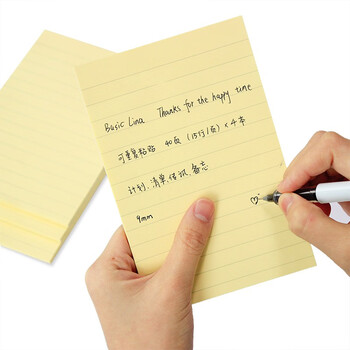 Basic Line Thanks for the happy time
可重复粘贴 40页 (15行/页) × 4本
计划.清单.便讯.备忘
9mm